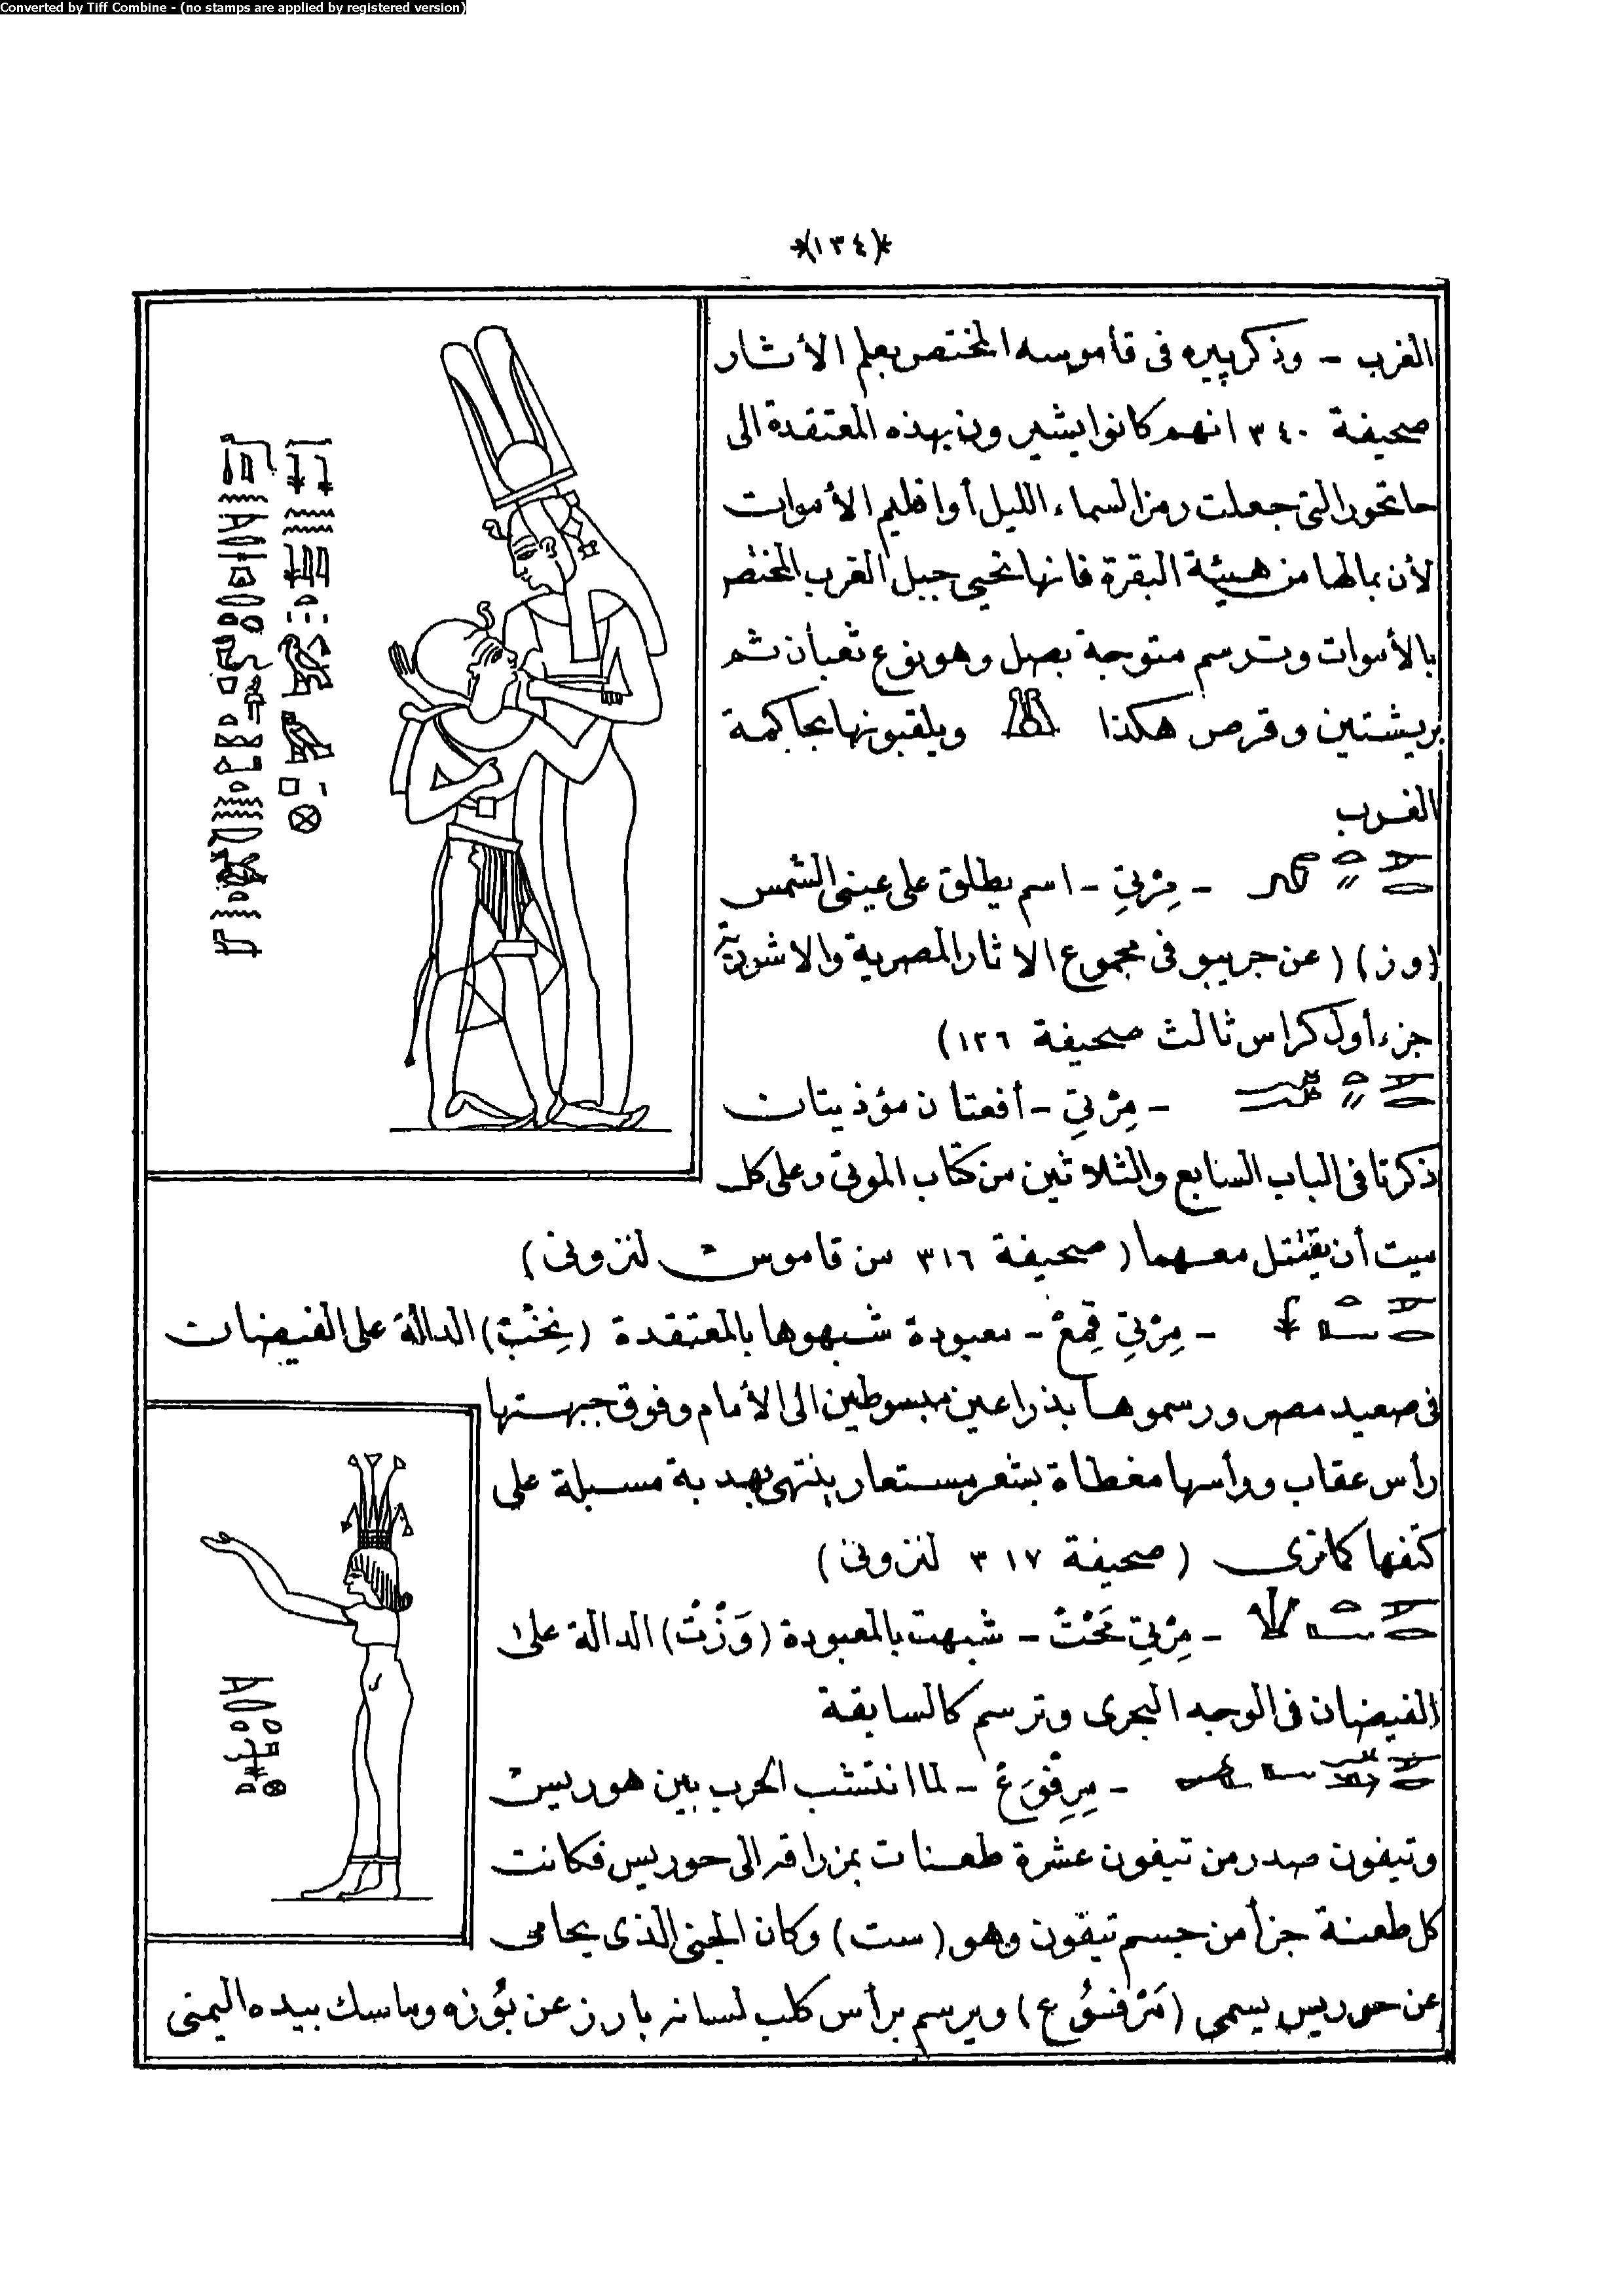 Converted by Tiff Combine - (no stamps are applied by registered version)
*(١٣٤)*
الغرب - وذكر پيره فى قاموسه المختصر بعلم الأثار
صحيفة ٣٤٠ انهم كانوا يشيرون بهذه المعتقدة الى
حاتحور التى جعلت رمزا لسماء الليل أو اقليم الأموات
لأن بمالها من هيئة البقرة فانها تحيى جبل الغرب المختص
بالأموات وترسم متوجة بصل وهو نوع ثعبان ثم
بريشتين وقرص هكذا ويلقبونها بحاكمة
الغرب
- مِرْتِى - اسم يطلق على عينى الشمس
(وز) (عن جريبو فى مجموع الاثار المصرية والاشورية
جزء أول كراس ثالث صحيفة ١٢٦)
- مِرْتِى - أفعتان مؤذيتان
ذكرتا فى الباب السابع والثلاثين من كتاب الموتى وعلى كل
ميت أن يقتتل معهما (صحيفة ٣١٦ من قاموس لنزونى)
- مِرْتِى قِمِعْ - معبودة شبهوها بالمعتقدة (نِخْبْ) الدالة على الفيضان
فى صعيد مصر ورسموها بذراعين مبسوطين الى الأمام وفوق جبهتها
رأس عقاب ورأسها مغطاة بشعر مستعار ينتهى بهدبة مسبلة على
كتفها كما ترى (صحيفة ٣١٧ لنزونى)
- مِرْتِى مَحْتْ - شبهت بالمعبودة (وَزْتْ) الدالة على
الفيضان فى الوجه البحرى وترسم كالسابقة
- مِرِفْوَعْ - لما انتشب الحرب بين هوريس
وتيفون صدر من تيفون عشرة طعنات بمزراقه الى حوريس فكانت
كل طعنة جزأ من جسم تيفون وهو (ست) وكان الجنى الذى يحامى
عن حوريس يسمى (مَرْفُوع) ويرسم برأس كلب لسانه بارز عن بُوزه وماسك بيده اليمنى